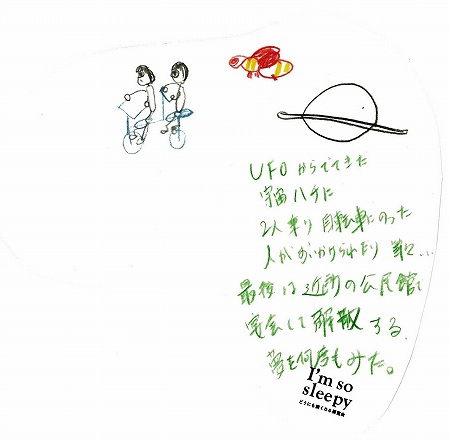 UFOからでてきた
宇宙ハチに
2人乗り自転車にのった
人がおいかけられたり
最後は近所の公民館で
宴会して解散する.
夢を何度もみた。
I'm so
sleepy
どうにも眠くなる展覧会